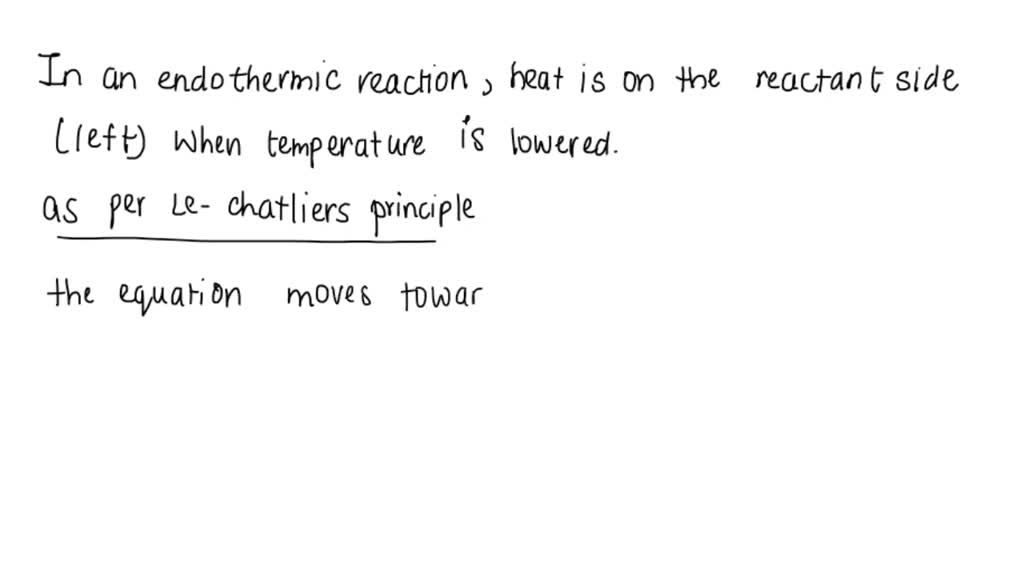 In an endothermic reaction, heat is on the reactant side
(left) when temperature is lowered.
as per Le- chatliers principle
the equation moves towar